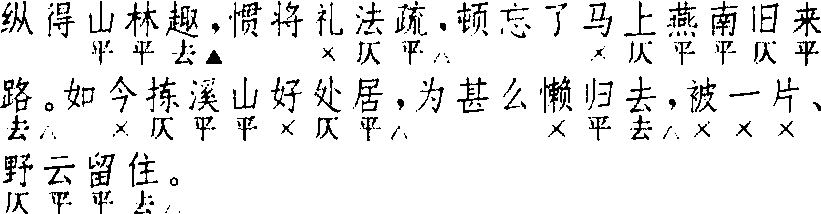 纵得山林趣，惯将礼法疏，顿忘了马上燕南旧来
平平去▲ ×仄平△ ×仄平平仄平
路。如今拣溪山好处居，为甚么懒归去，被一片、
去△ ×仄平平×仄平△ ×平去△×××
野云留住。
仄平平去△